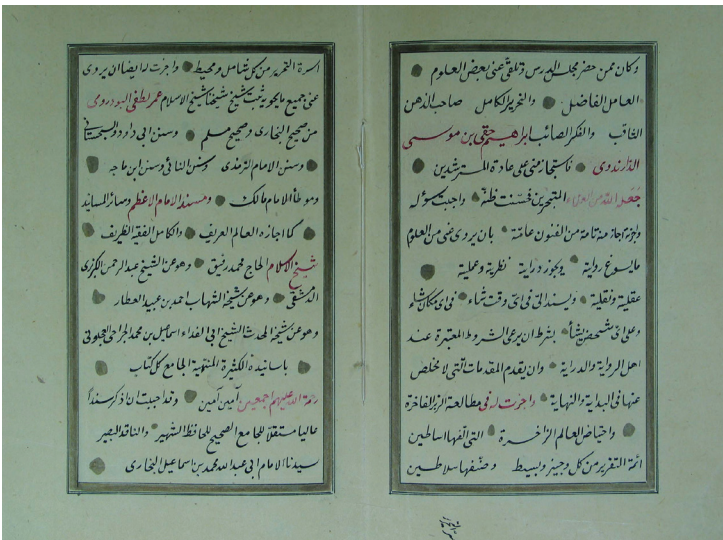 وكان ممن حضر مجلس الدرس وتلقى عنى بعض العلوم
العامل الفاضل والنحرير الكامل صاحب الذهن
الثاقب والفكر الصائب ابراهيم حقى بن موسى
الدارندوى فاستجاز منى على عادة المسترشدين
جعله الله من العلماء المتبحرين فحسنت ظنه واجبت سؤله
واجزته اجازة تامة من الفنون عامة بان يروى عنى من العلوم
ما يسوغ رواية ويجوز دراية نظرية وعملية
عقلية ونقلية ويسند الى فى اى وقت شاء فى اى مكان شاء
وعلى اى شخص يشأ بشرط ان يرعى الشروط المعتبرة عند
اهل الرواية والدراية وان يقدم المقدمات التى لا مخلص
عنها فى البداية والنهاية واجزت له فى مطالعة الزبر الفاخرة
واحتياض العالم الزاخرة التى الفها اساطين
ائمة التقرير من كل وجيز وبسيط وصنفها سلاطين
اسرة التحرير من كل شامل ومحيط واجزت له ايضا ان يروى
عنى جميع ما يحويه ثبت شيخ شيخنا شيخ الاسلام عمر لطفى البودرومى
من صحيح البخارى وصحيح مسلم وسنن ابى داود والسجستانى
وسنن الامام الترمذى وسنن النسائى وسنن ابن ماجه
وموطأ الامام مالك ومسند الامام الاعظم وسائر المسانيد
كما اجازه العالم العريف والكامل الفقيه الظريف
شيخ الاسلام الحاج محمد رفيق وهو عن الشيخ عبد الرحمن الكزبرى
الدمشقى وهو عن شيخه الشهاب احمد بن عبيد العطار
وهو عن شيخه المحدث الشيخ ابى الفداء اسماعيل بن محمد الجراحى العجلونى
باسانيده الكثيرة المنتهية الجامع كل كتاب
رحمة الله عليهم اجمعين آمين آمين وقد اجبت ان اذكر سندا
عاليا مستقلا للجامع الصحيح للحافظ الشهير والناقد البصير
سيدنا الامام ابى عبد الله محمد بن اسماعيل البخارى